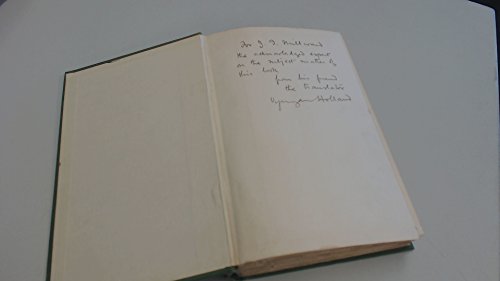 For J. I. Millward
the acknowledged expert
on the subject matter of
this book
from his friend
the translator
Vyvyan Holland